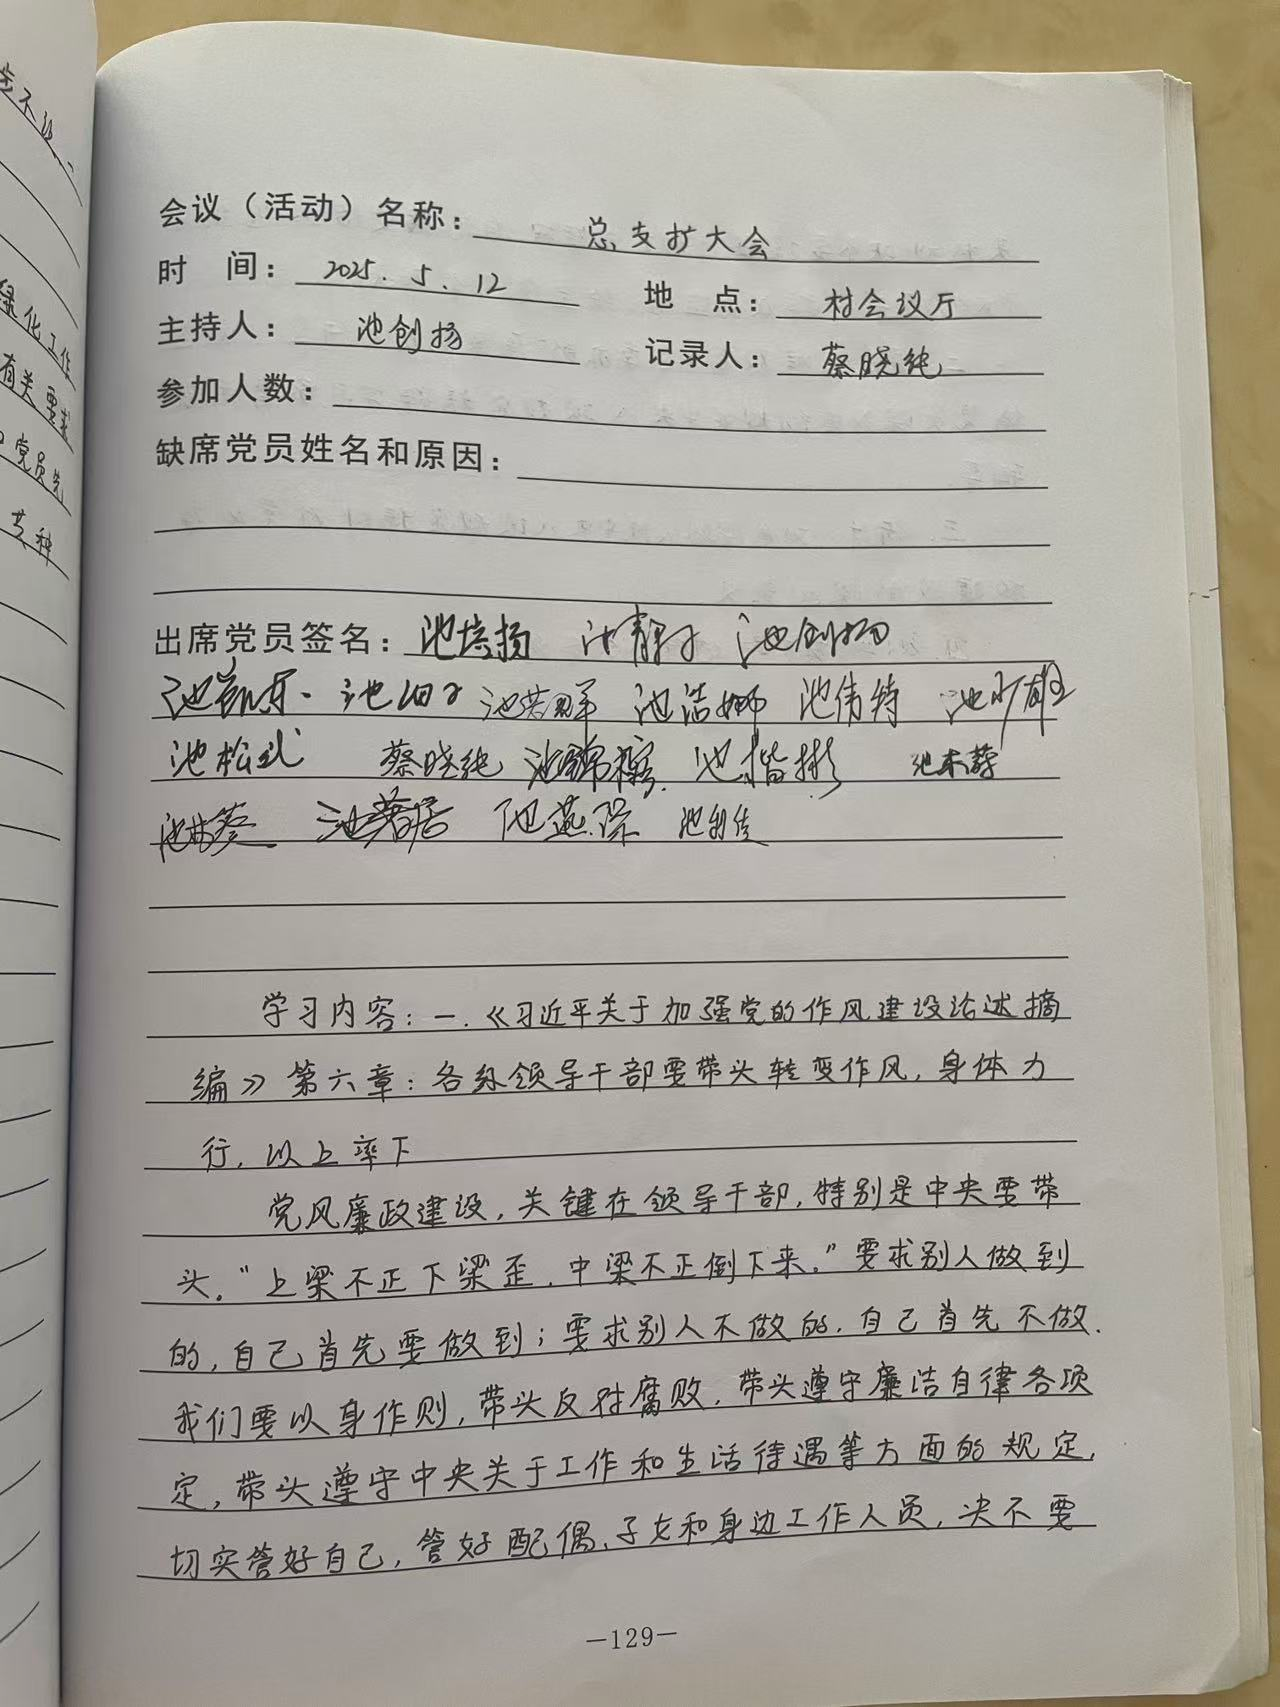 绿化工作
有关要求
党员先
会议（活动）名称：总支扩大会
时 间：2025.5.12 地 点：村会议厅
主持人：池创扬 记录人：蔡晓纯
参加人数：
缺席党员姓名和原因：
出席党员签名：池培扬 池静子 池创扬
池洁娜 池伟特
池松武 蔡晓纯 池锦 池楷彬
池燕 池利佳
学习内容：一.《习近平关于加强党的作风建设论述摘
编》第六章：各级领导干部要带头转变作风，身体力
行，以上率下
党风廉政建设，关键在领导干部，特别是中央要带
头。“上梁不正下梁歪，中梁不正倒下来。”要求别人做到
的，自己首先要做到；要求别人不做的，自己首先不做.
我们要以身作则，带头反对腐败，带头遵守廉洁自律各项
定，带头遵守中央关于工作和生活待遇等方面的规定，
切实管好自己，管好配偶、子女和身边工作人员，决不要
—129—